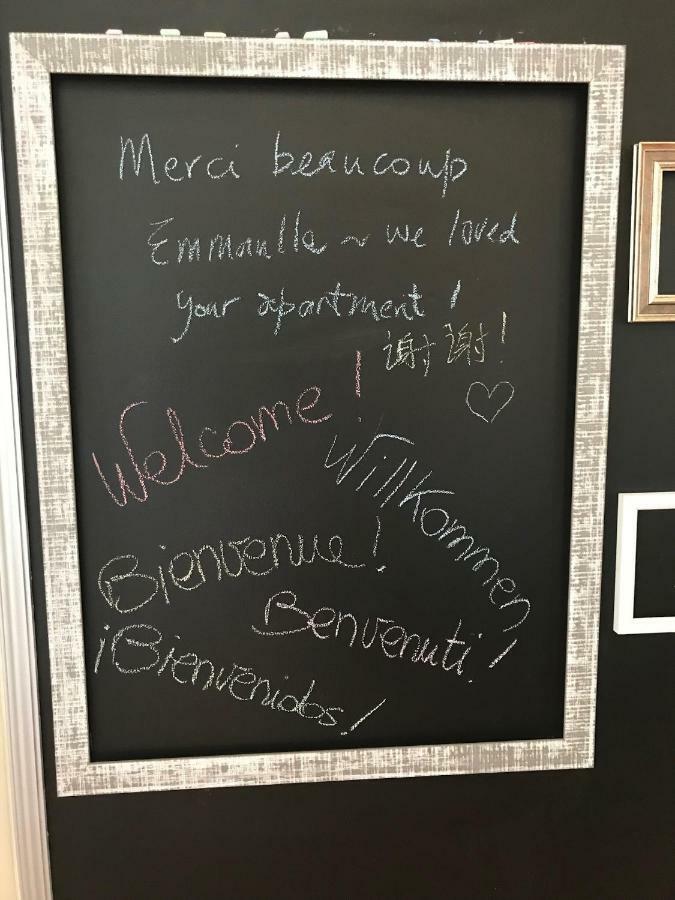 Merci beaucoup
Emmanlla ~ we loved
your apartment!
谢谢!
Welcome!
Willkommen
Bienvenue!
Benvenuti!
¡Bienvenidos!